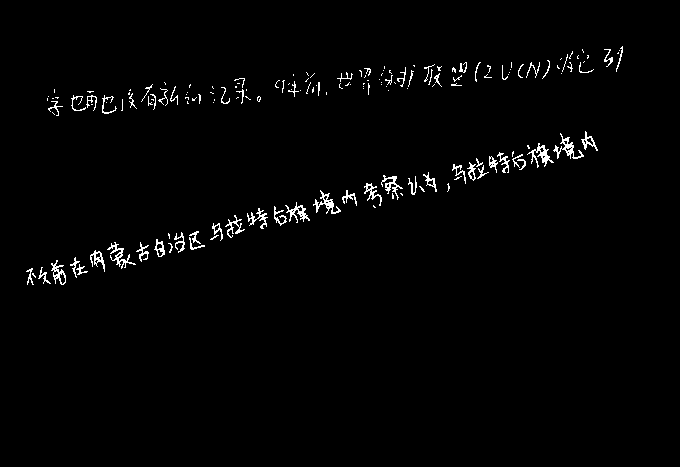 字也再也没有新的记录。9年前,世界保护联盟(IUCN)将它列
不久前在内蒙古自治区乌拉特后旗境内考察认为,乌拉特后旗境内